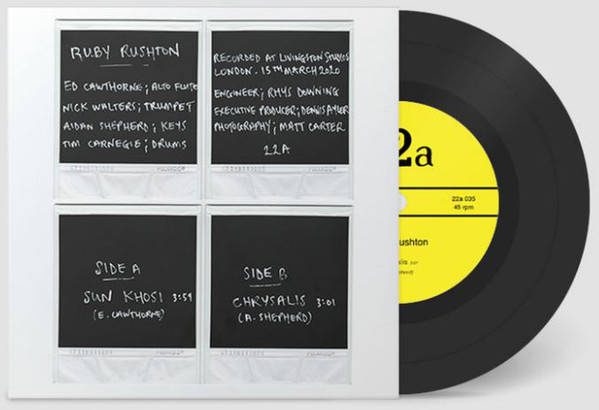 RUBY RUSHTON
ED CAWTHORNE; ALTO FLUTE
NICK WALTERS; TRUMPET
AIDAN SHEPHERD; KEYS
TIM CARNEGIE; DRUMS
RECORDED AT LIVINGSTON STUDIOS
LONDON. 15TH MARCH 2020
ENGINEER; RHYS DOWNING
EXECUTIVE PRODUCER; DENNIS AYLER
PHOTOGRAPHY; MATT CARTER
22A
SIDE A
SUN KHOSI 3:59
(E. CAWTHORNE)
SIDE B
CHRYSALIS 3:01
(A. SHEPHERD)
2a
22a 035
45 rpm
ushton